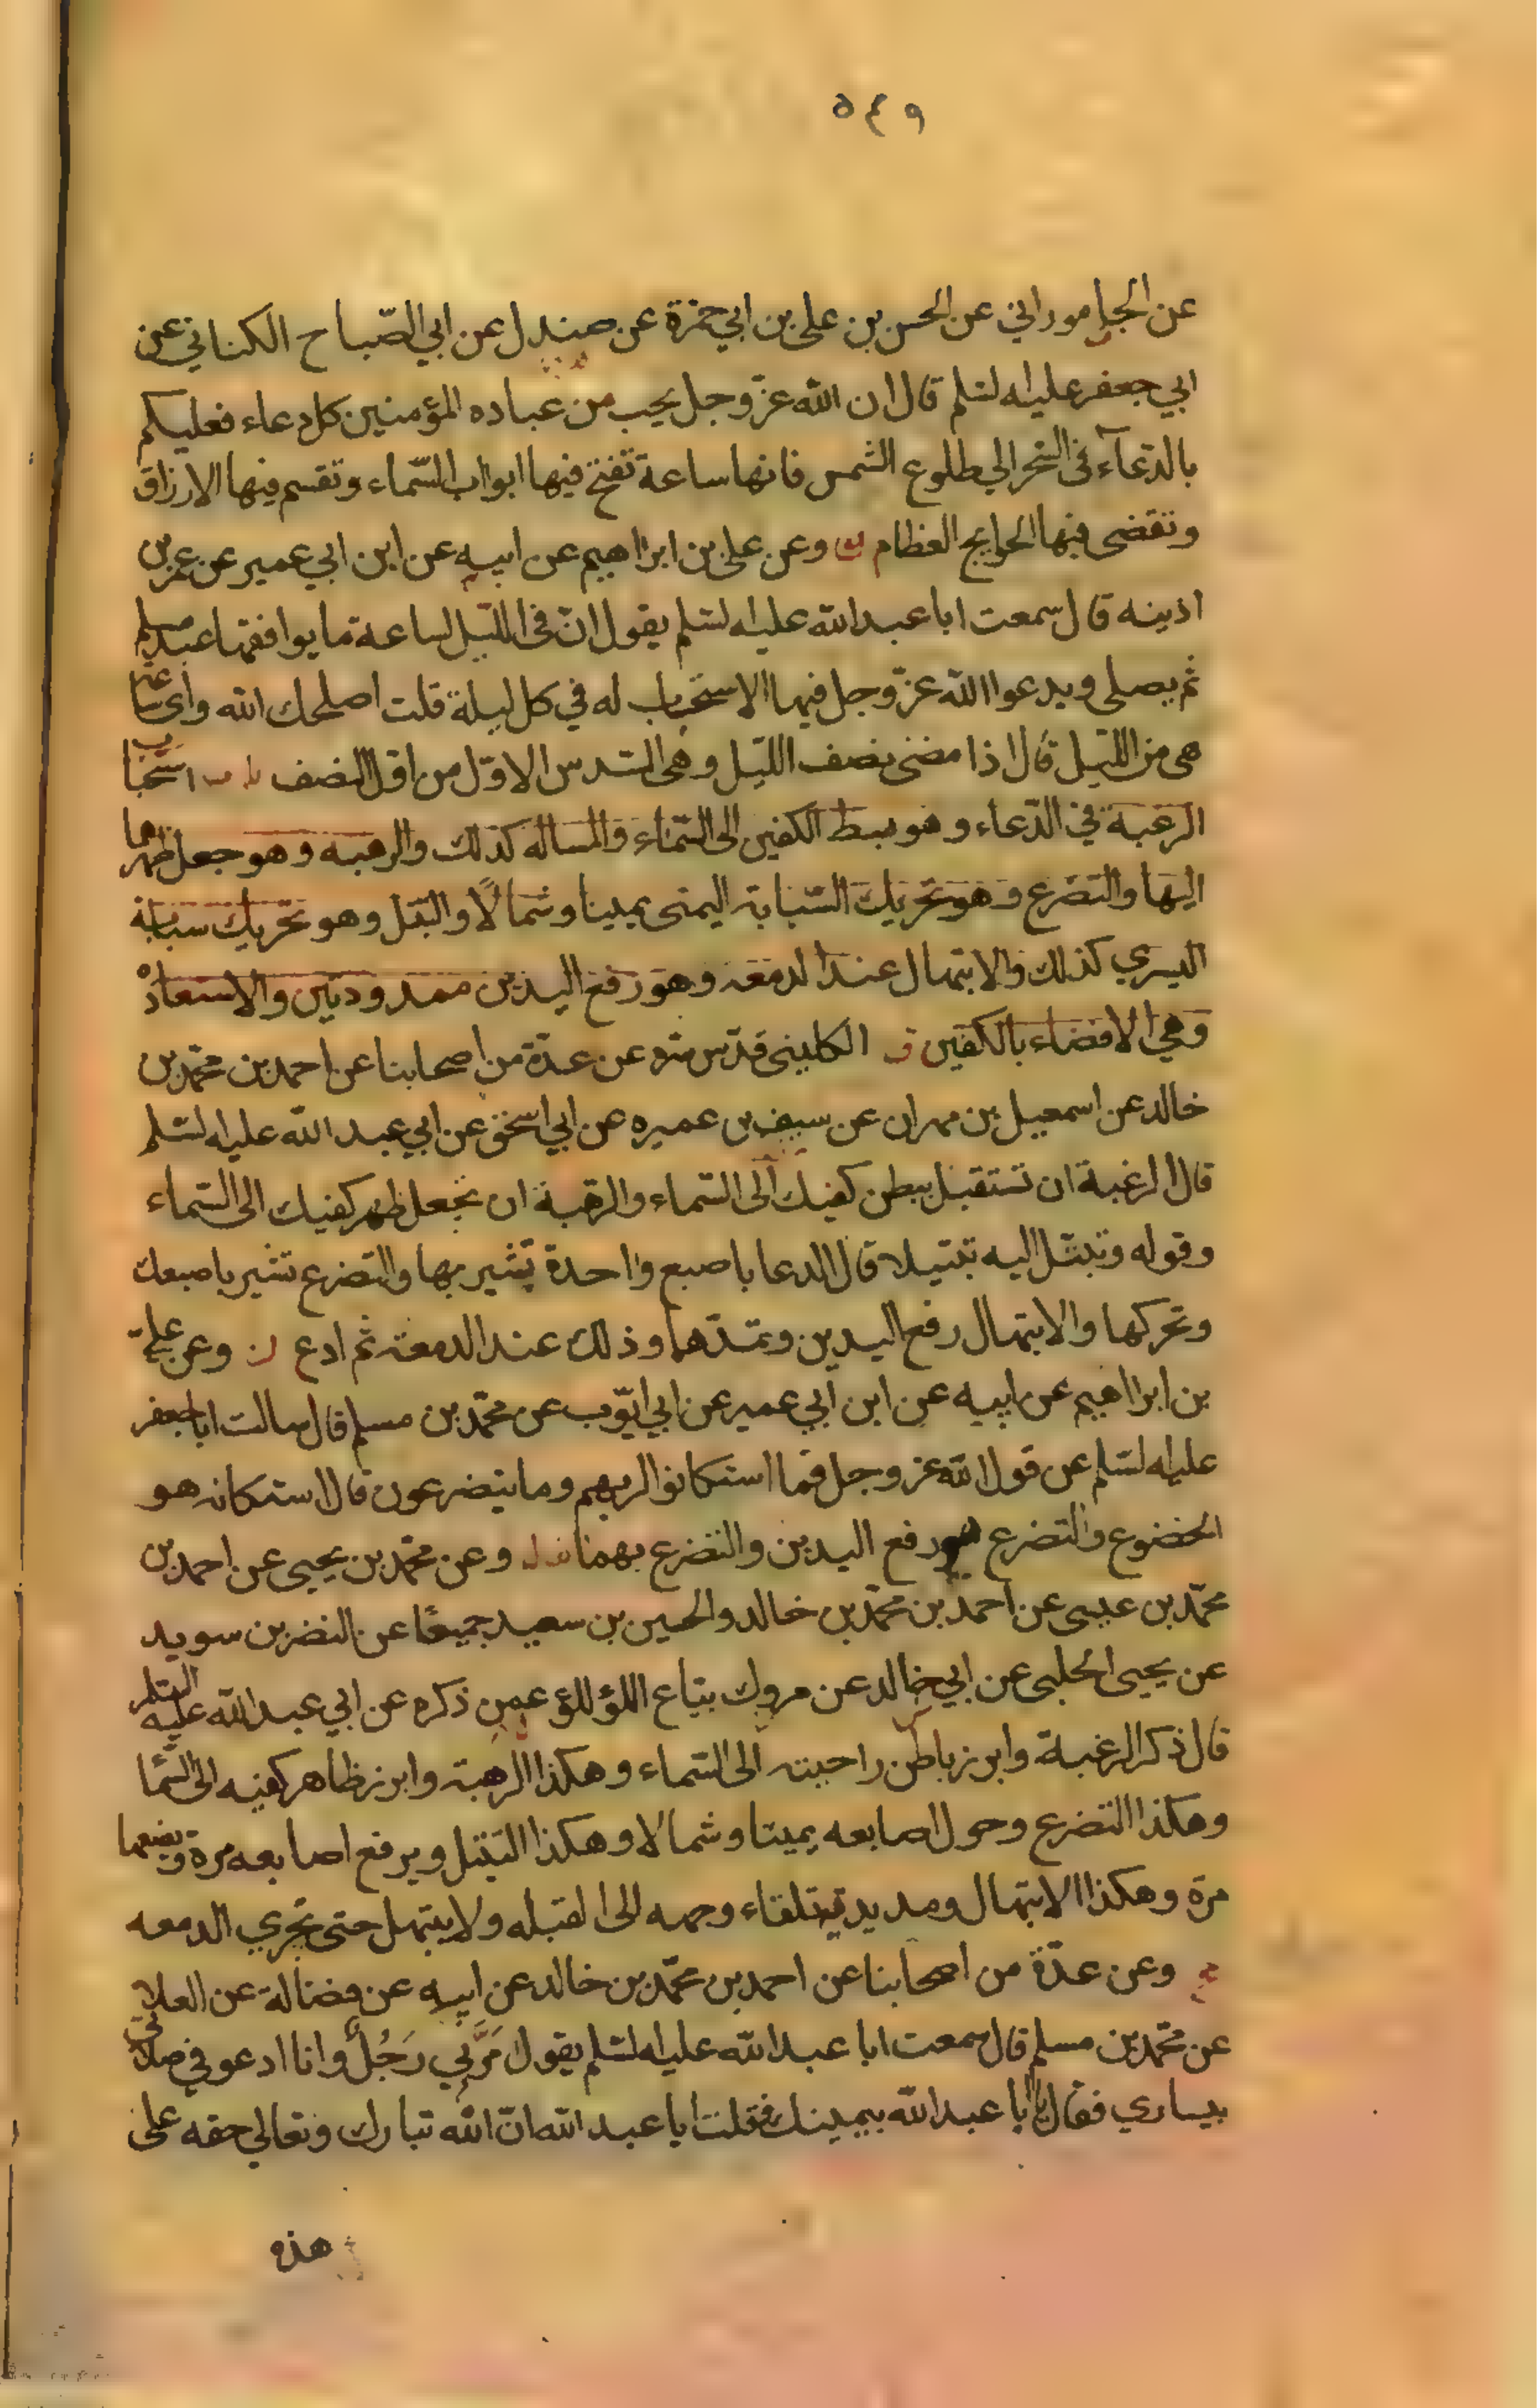 ٥٤٩
عن الجاموراني عن الحسن بن على بن ابي حمزة عن صندل عن ابي الصّباح الكناني عن
ابي جعفر عليه لسّلم قال ان الله عزّ وجل يحب من عباده المؤمنين كل دعاء فعليكم
بالدّعآء فى السّحر الى طلوع الشمس فانها ساعة تفتح فيها ابواب السّماء وتقسم فيها الارزاق
وتقضى فيها الحوايج العظام وعن على بن ابراهيم عن ابيه عن ابن ابي عمير عن عمر بن
اذينه قال سمعت ابا عبد الله عليه لسّلم يقول انّ فى اللّيل لساعة ما يوافقها عبد مسلم
ثم يصلى ويدعوا الله عزّ وجل فيها الا استجاب له في كل ليلة قلت اصلحك الله واى ساعة
هى من اللّيل قال اذا مضى نصف اللّيل وهى السّدس الاوّل من اوّل النصف استحباب
الرغبة في الدّعاء وهو بسط الكفين الى السّماء والمساله كذلك والرهبه وهو جعل ظهرهما
اليها والتضرع وهو تحريك السّبابة اليمنى يمينا وشمالًا والتبتل وهو تحريك سبابة
اليسري كذلك والابتهال عند الدمعه وهو رفع اليدين ممدودتين والاستعاذه
وهي الافضاء بالكفين الكلينى قدّس سّره عن عدّة من اصحابنا عن احمد بن محمّد بن
خالد عن اسمعيل بن مهران عن سيف بن عميره عن ابي اسحق عن ابي عبد الله عليه لسّلم
قال الرغبة ان تستقبل ببطن كفيك الى السّماء والرهبة ان تجعل ظهر كفيك الى السّماء
وقوله وتبتّل اليه تبتيلا قال الدعا باصبع واحدة تشير بها والتضرع تشير باصبعك
وتحركها والابتهال رفع اليدين وتمدّهما وذلك عند الدمعة ثم ادع وعن علي
بن ابراهيم عن ابيه عن ابن ابي عمير عن ابي ايّوب عن محمّد بن مسلم قال سالت ابا جعفر
عليه لسّلم عن قول الله عز وجل فما استكانوا لربهم وما يتضرعون قال الاستكانه هو
الخضوع والتضرع هو رفع اليدين والتضرع بهما وعن محمّد بن يحيى عن احمد بن
محمّد بن عيسى عن احمد بن محمّد بن خالد والحسين بن سعيد جميعًا عن النضر بن سويد
عن يحيى الحلبى عن ابي خالد عن مروك بياع اللؤلؤ عمن ذكره عن ابي عبد الله عليه السّلم
قال ذكر الرغبة وابرز باطن راحيته الى السّماء وهكذا الرهبة وابرز ظاهر كفيه الى السّما
وهكذا التضرع وحول اصابعه يمينا وشمالا وهكذا التبتل ويرفع اصابعه مرة ويضعها
مرّة وهكذا الابتهال ومد يديه تلقاء وجهه الى القبله ولا يبتهل حتى تجري الدمعه
وعن عدّة من اصحابنا عن احمد بن محمّد بن خالد عن ابيه عن فضالة عن العلا
عن محمّد بن مسلم قال سمعت ابا عبد الله عليه لسّلم يقول مَرَّ بي رَجُل وانا ادعو في صلاتي
بيساري فقال يا ابا عبد الله بيمينك فقلت يا عبد الله انّ الله تبارك وتعالى حقه على
هذه